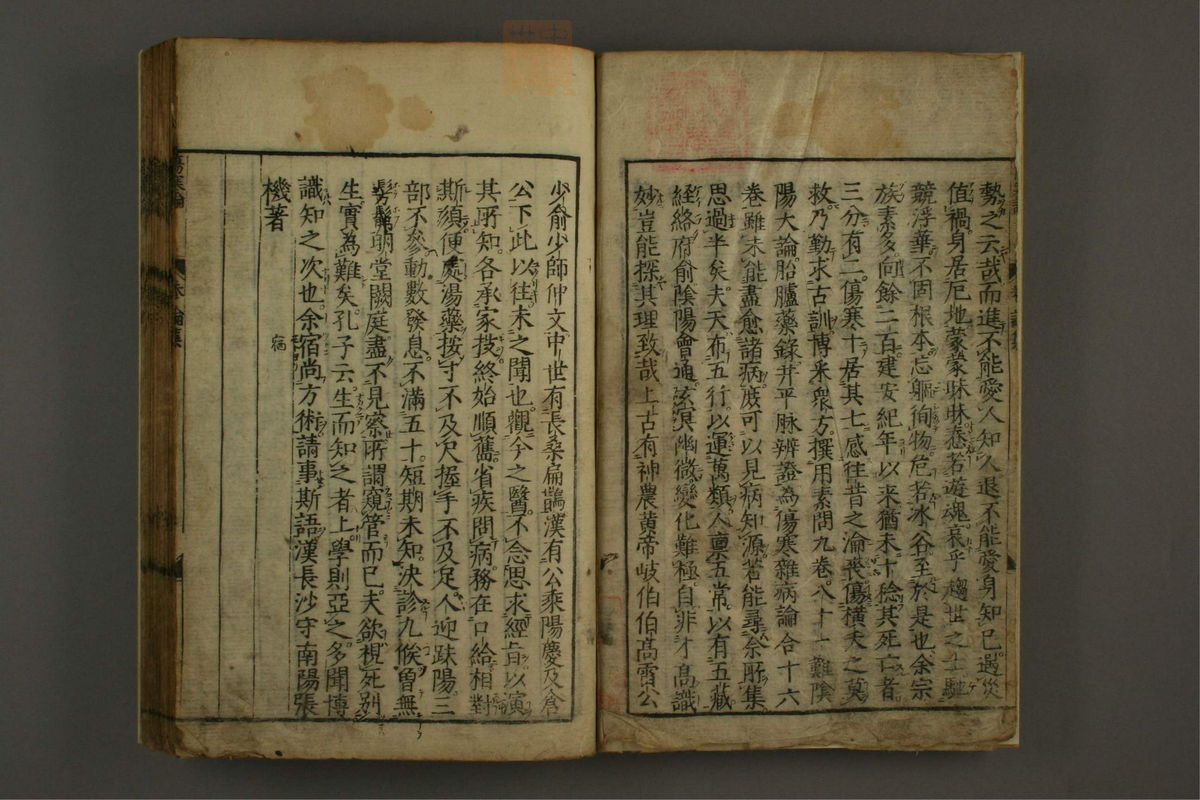 勢之云哉而進不能愛人知人退不能愛身知己遇災
值禍身居厄地蒙蒙昧昧惷若遊魂哀乎趨世之士馳
競浮華不固根本忘軀徇物危若冰谷至於是也余宗
族素多向餘二百建安紀年以来猶未十稔其死亡者
三分有二傷寒十居其七感往昔之淪喪傷橫夭之莫
救乃勤求古訓博采衆方撰用素問九卷八十一難陰
陽大論胎臚藥錄并平脉辨證為傷寒雜病論合十六
卷雖未能盡愈諸病庶可以見病知源若能尋余所集
思過半矣夫天布五行以運萬類人稟五常以有五藏
経絡府俞陰陽會通玄冥幽微變化難極自非才高識
妙豈能探其理致哉上古有神農黄帝岐伯伯高雷公
少俞少師仲文中世有長桑扁鵲漢有公乘陽慶及倉
公下此以往未之聞也觀今之醫不念思求經旨以演
其所知各承家技終始順舊省疾問病務在口給相對
斯須便處湯藥按寸不及尺握手不及足人迎趺陽三
部不參動數發息不滿五十短期未知决診九候曾無
髣髴明堂闕庭盡不見察所謂窺管而已夫欲視死别
生實為難矣孔子云生而知之者上學則亞之多聞博
識知之次也余宿尚方術請事斯語漢長沙守南陽張
宿
機著